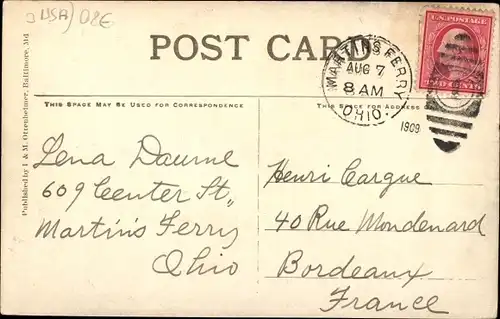 (USA) OFE
POST CARD
MARTINS FERRY
AUG 7
8 AM
OHIO.
1909
U.S. POSTAGE
TWO CENTS
THIS SPACE MAY BE USED FOR CORRESPONDENCE
THIS SPACE FOR ADDRESS
Published by I & M. Ottenheimer, Baltimore, Md.
Lena Daume
609 Center St,,
Martin's Ferry
Ohio
Henri Cargue
40 Rue Mondenard
Bordeaux
France